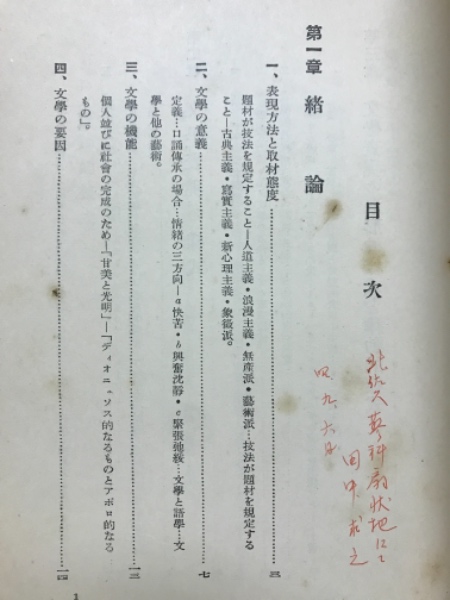 目次
北佐久蓼科扇状地にて
田中求之
四九、六月
第一章 緒論
一、表現方法と取材態度……三
題材が技法を規定すること―人道主義・浪漫主義・無產派・藝術派…技法が題材を規定する
こと―古典主義・寫實主義・新心理主義・象徵派。
二、文學の意義……七
定義…口誦傳承の場合…情緖の三方向―a快苦・b興奮沈靜・c緊張弛緩…文學と語學…文
學と他の藝術。
三、文學の機能……一三
個人並びに社會の完成のため―「甘美と光明」―「ディオニュソス的なるものとアポロ的なる
もの」。
四、文學の要因……一四
1